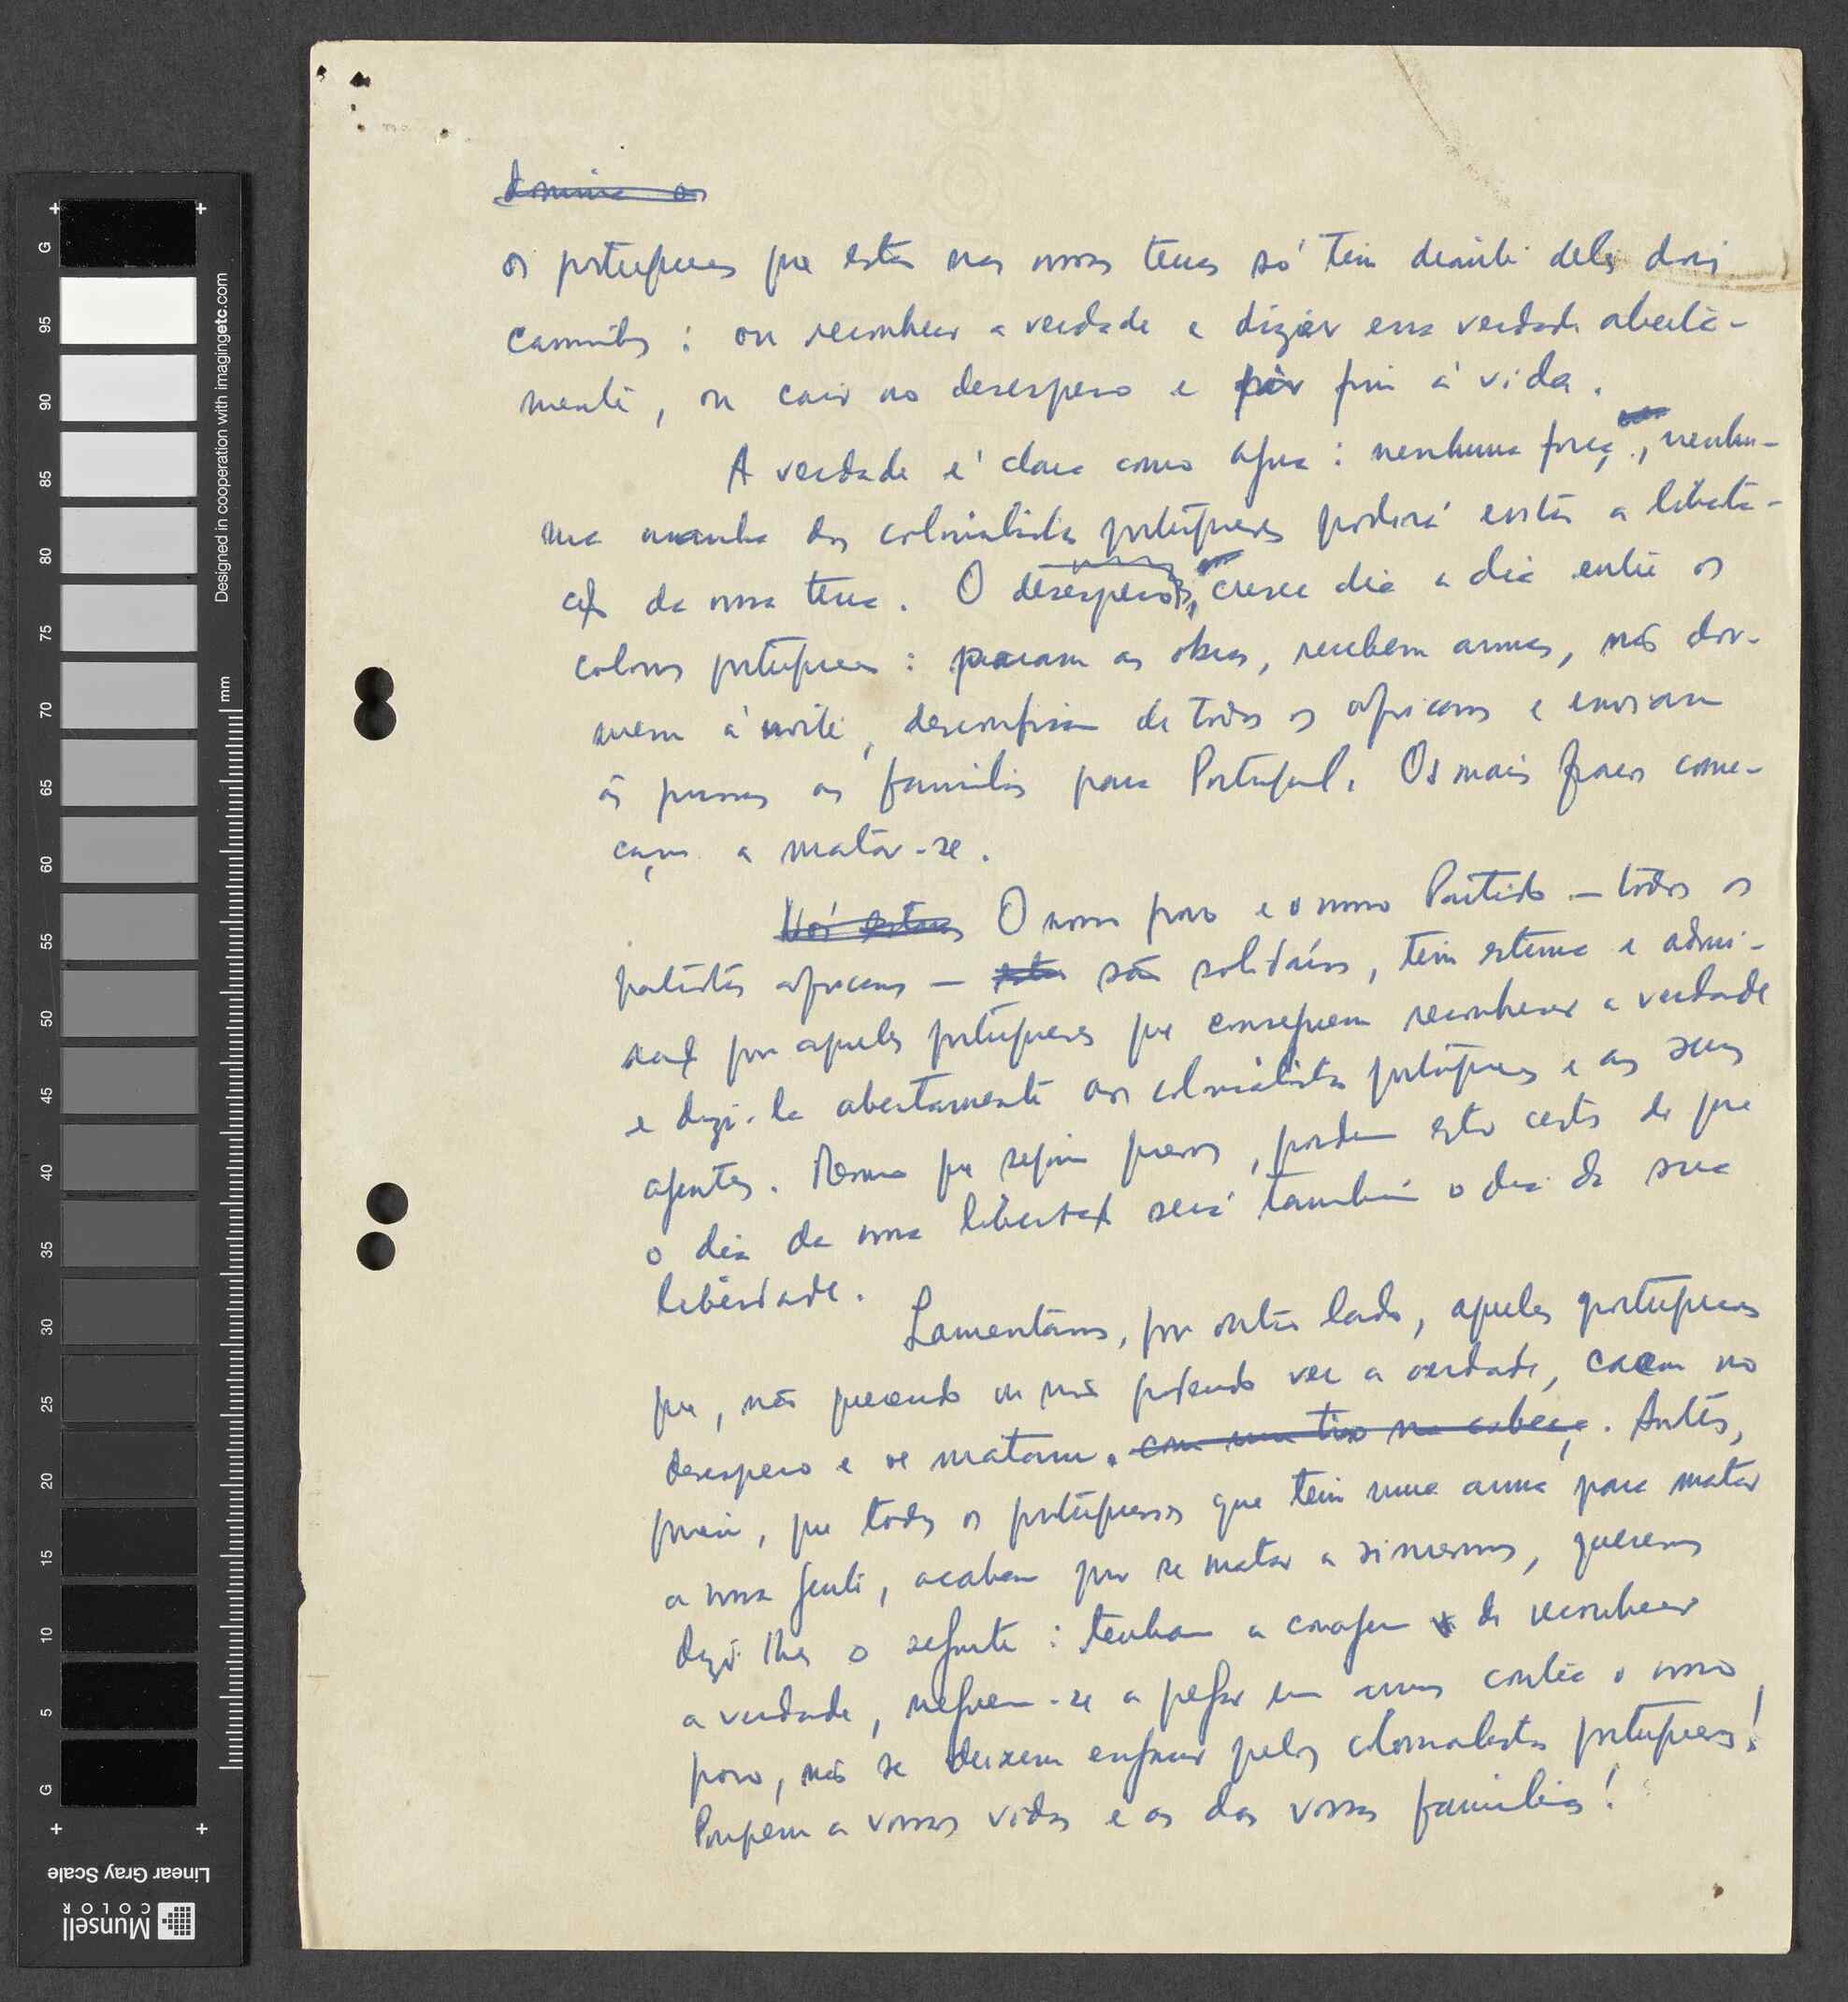 domina os
os portugueses que estão nas nossas terras só têm diante deles dois
caminhos: ou reconhecer a verdade e dizer essa verdade aberta-
mente, ou cair no desespero e pôr fim à vida.
A verdade é clara como água: nenhuma força, nenhu-
ma manha dos colonialistas portugueses poderá evitar a liberta-
ção da nossa terra. O desespero cresce dia a dia entre os
colonos portugueses: param as obras, recebem armas, não dor-
mem à noite, desconfiam de todos os africanos e enviam
às pressas as famílias para Portugal. Os mais fracos come-
çam a matar-se.
Nós estamos O nosso povo e o nosso Partido — todos os
patriotas africanos — são solidários, têm estima e admi-
ração por aqueles portugueses que conseguem reconhecer a verdade
e dizê-la abertamente aos colonialistas portugueses e aos seus
agentes. Mesmo que sejam presos, podem estar certos de que
o dia da nossa libertação será também o dia da sua
liberdade.
Lamentamos, por outro lado, aqueles portugueses
que, não querendo ou não podendo ver a verdade, caem no
desespero e se matam. com um tiro na cabeça. Antes,
porém, que todos os portugueses que têm uma arma para matar
a nossa gente, acabem por se matar a si mesmos, queremos
dizer-lhes o seguinte: tenham a coragem de reconhecer
a verdade, neguem-se a pegar em armas contra o nosso
povo, não se deixem enganar pelos colonialistas portugueses!
Poupem as vossas vidas e as das vossas famílias!
Designed in cooperation with imagingetc.com
mm
G
95
90
85
80
75
70
65
60
55
50
45
40
35
30
25
20
15
10
5
G
Linear Gray Scale
Munsell
COLOR